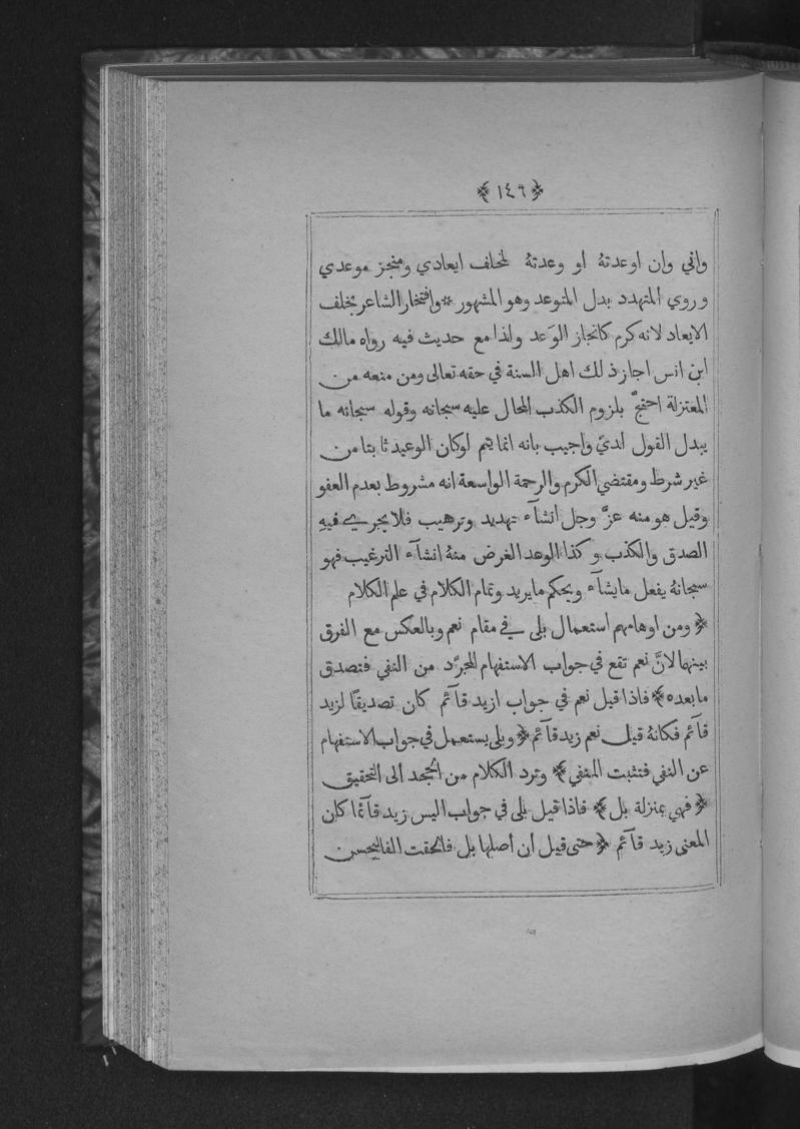 ﴿١٤٦﴾
واني وان اوعدتهُ او وعدتهُ لمخلف ايعادي ومنجز موعدي
وروي المتهدد بدل المتوعد وهو المشهور * وافتخار الشاعر بخلف
الايعاد لانه كرم كانجاز الوَعد ولذا مع حديث فيه رواه مالك
ابن انس اجاز ذلك اهل السنة في حقه تعالى ومن منعه من
المعتزلة احتجَّ بلزوم الكذب المحال عليه سبحانه وقوله سبحانه ما
يبدل القول لديّ واجيب بانه انما يتم لوكان الوعيد ثابتا من
غير شرط ومقتضي الكرم والرحمة الواسعة انه مشروط بعدم العفو
وقيل هو منه عزَّ وجل انشآء تهديد وترهيب فلا يجري فيهِ
الصدق والكذب وكذا الوعد الغرض منهُ انشآء الترغيب فهو
سبحانهُ يفعل مايشآء ويحكم مايريد وتمام الكلام في علم الكلام
﴿ ومن اوهامهم استعمال بلى في مقام نعم وبالعكس مع الفرق
بينهما لانَّ نعم تقع في جواب الاستفهام المجرّد من النفي فتصدق
مابعده ﴾ فاذا قيل نعم في جواب ازيد قآئم كان تصديقًا لزيد
قآئم فكانهُ قيل نعم زيد قآئم ﴿ وبلى يستعمل في جواب الاستفهام
عن النفي فتثبت المنفي ﴾ وترد الكلام من الجحد الى التحقيق
﴿ فهي بمنزلة بل ﴾ فاذا قيل بلى في جواب اليس زيد قآئما كان
المعنى زيد قآئم ﴿ حتى قيل ان اصلها بل فالحقت الفا ليحسن